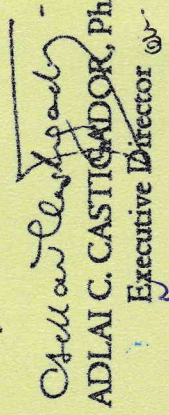 ADLAI C. CASTIGADOR, Ph
Executive Director